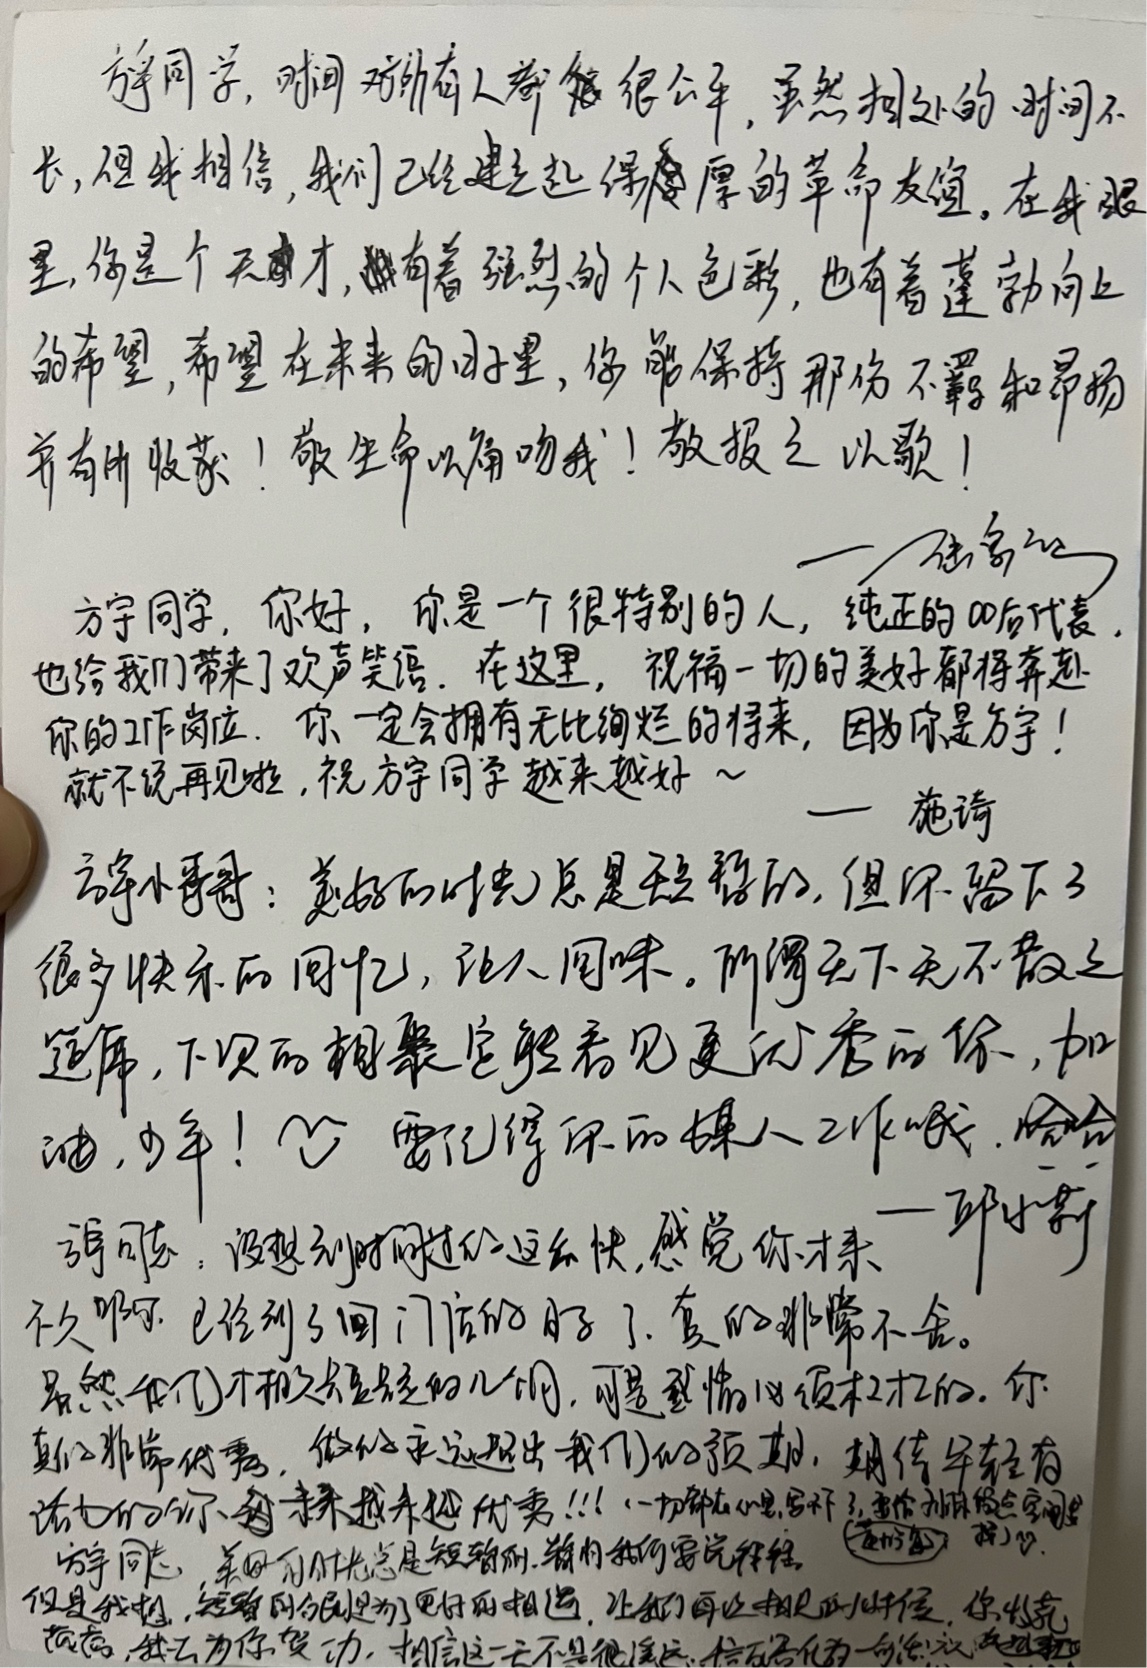 方宇同学，时间对所有人都很公平，虽然相处的时间不
长，但我相信，我们已经建立起深厚的革命友谊。在我眼
里，你是个天才，有着强烈的个人色彩，也有着蓬勃向上
的希望，希望在未来的日子里，你能保持那份不羁和昂扬
并有所收获！敬生命以痛吻我！敬报之以歌！
方宇同学，你好，你是一个很特别的人，纯正的00后代表，
也给我们带来了欢声笑语．在这里，祝福一切的美好都将奔赴
你的工作岗位．你一定会拥有无比绚烂的将来，因为你是方宇！
就不说再见啦，祝方宇同学越来越好～
—— 施琦
方宇小哥哥：美好的时光总是短暂的，但你留下了
很多快乐的回忆，让人回味。所谓天下无不散之
筵席，下次的相聚定能看见更优秀的你，加
油，少年！要记得你的媒人工作哦．哈哈
——邱小莉
方宇同志：没想到时间过的这么快，感觉你才来
不久啊 已经到了回门店的日子了．真的非常不舍。
虽然我们才相处短短的几个月，可是感情必须杠杠的．你
真的非常优秀，做的永远超出我们的预期，期待年轻有
活力的你 未来越来越优秀！！！
方宇同志 美好的时光总是短暂的．
但是我想，短暂的分别是为了更好的相遇，让我们再次相见的时候，你
我去为你贺功，相信这一天不是很遥远．